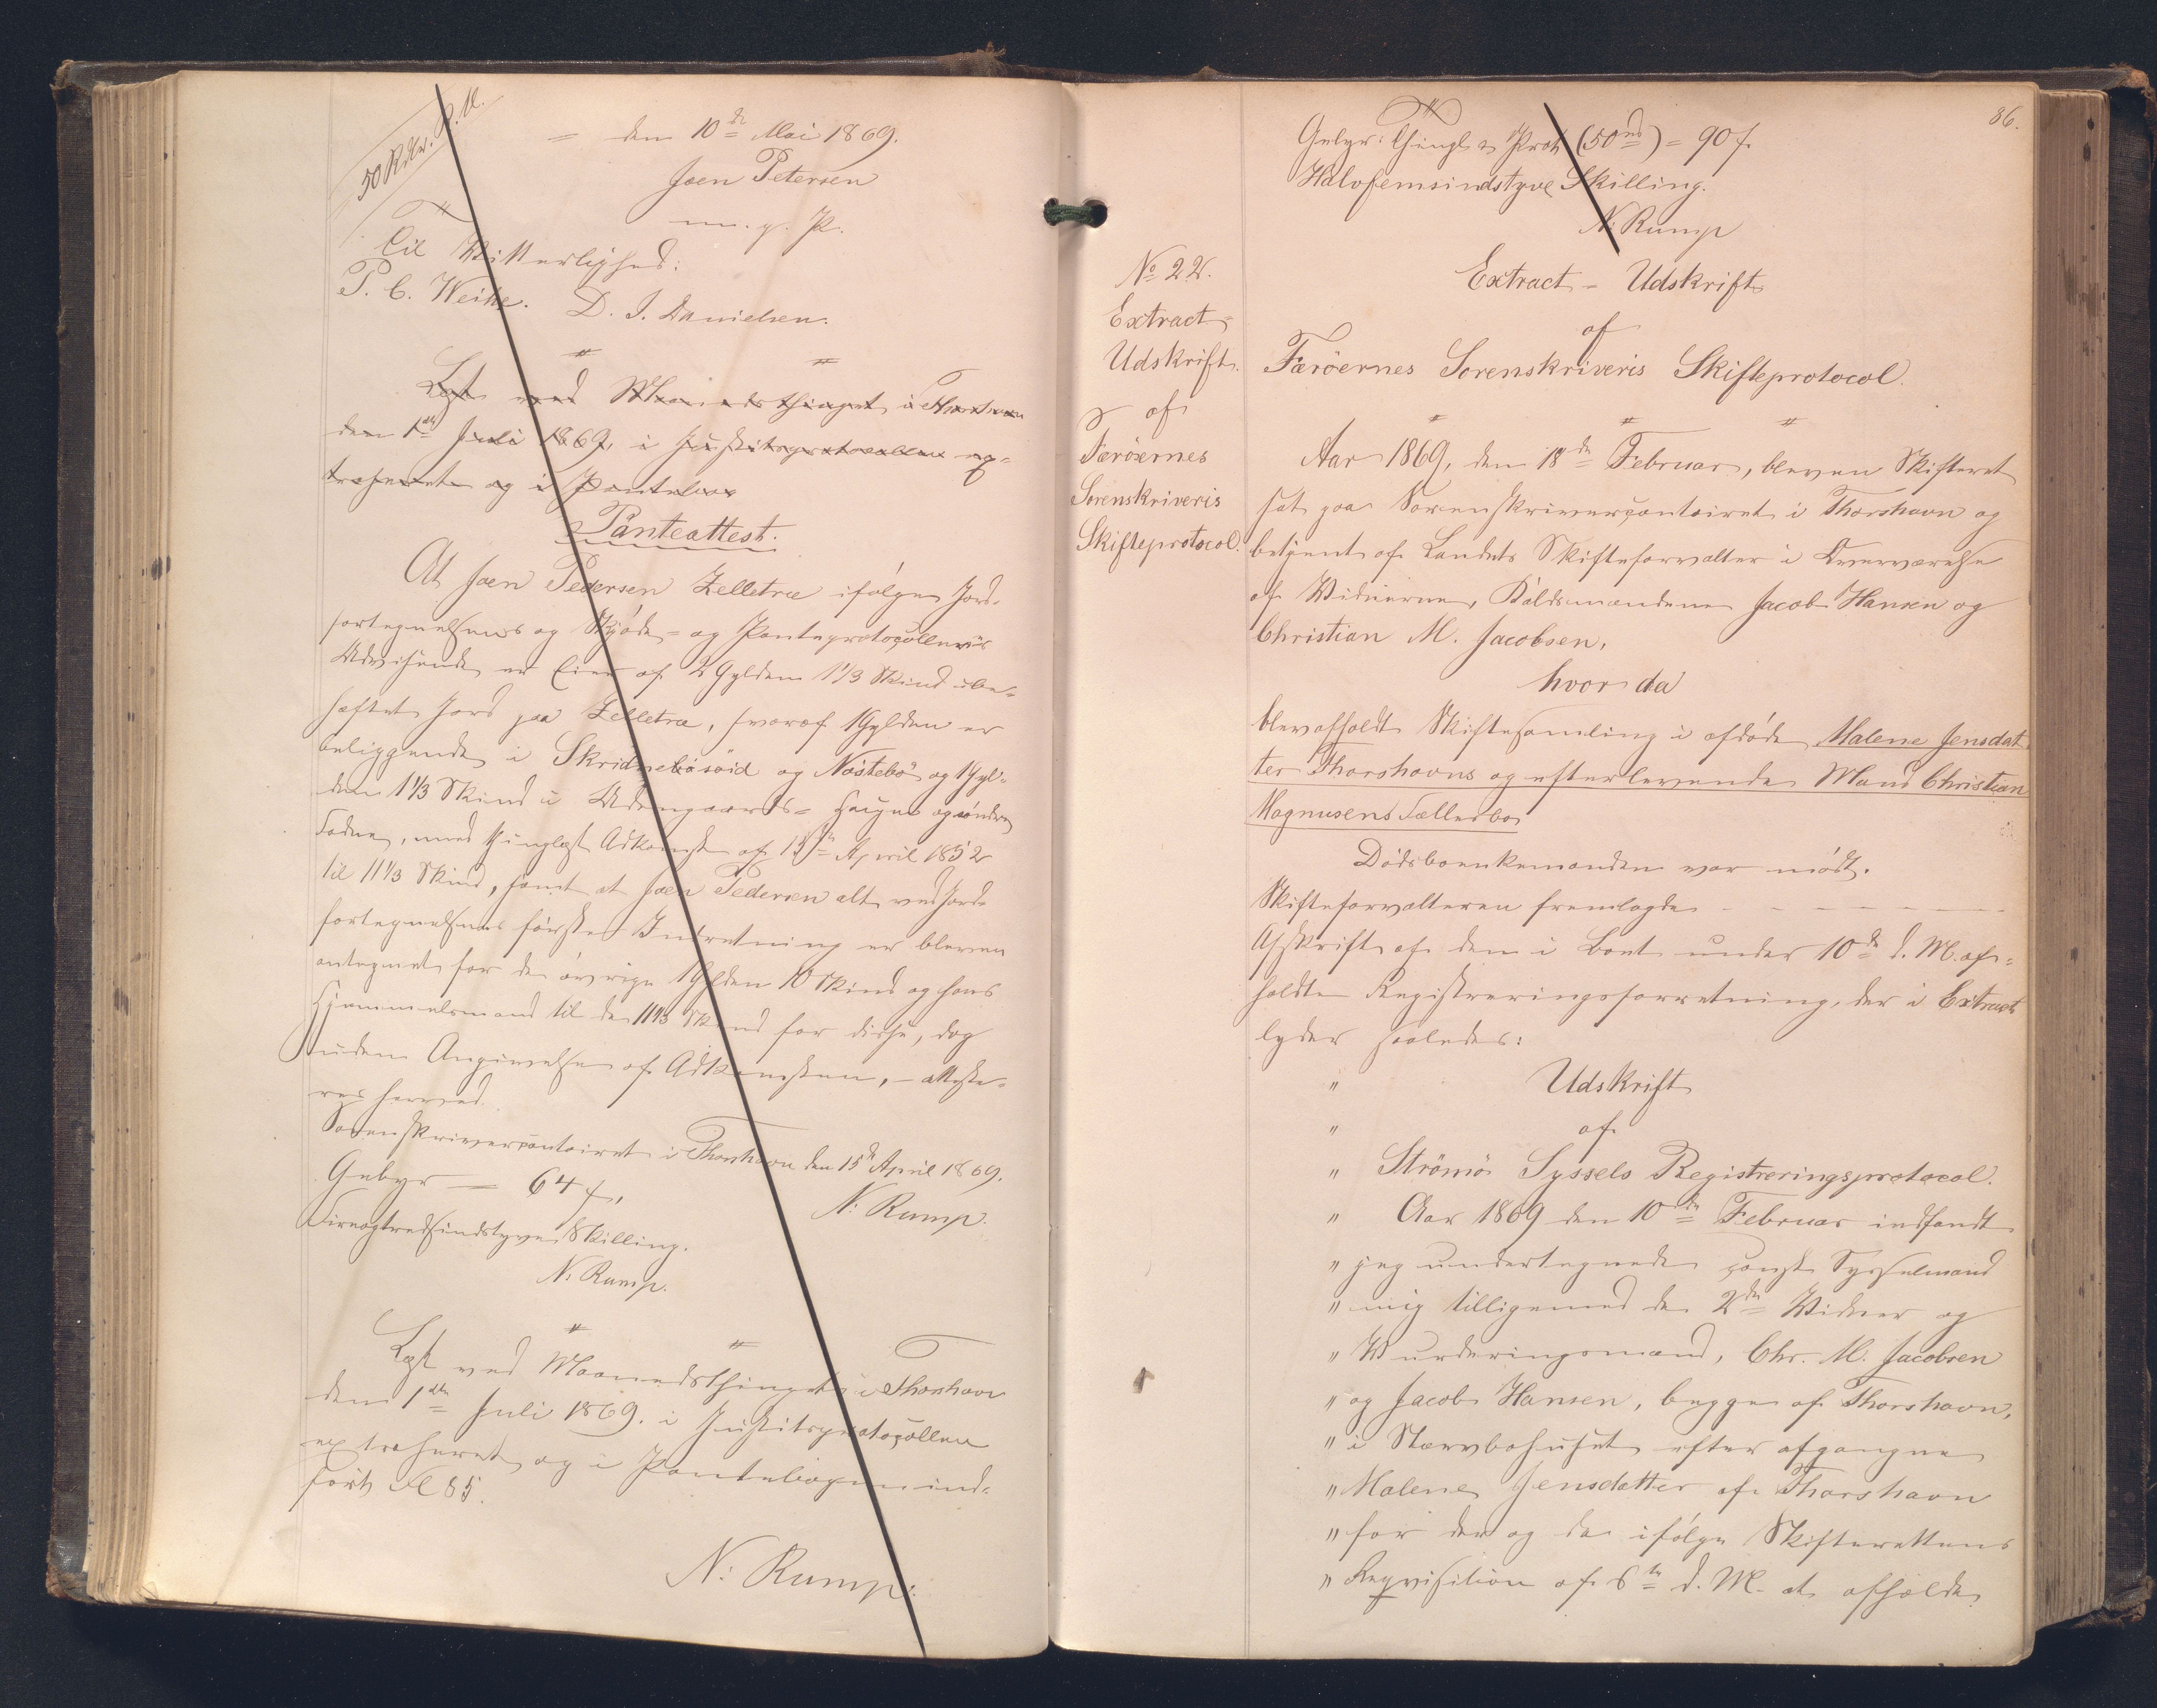 50 Rdlr. R. M.
= den 10de Mai 1869.
Joen Petersen
m. p. P.
Til Vitterlighed:
P. C. Weihe. D. I. Danielsen.
Læst ved Maanedsthinget i Thorshavn
den 1ste Juli 1869, i Justitsprotocollen ex=
traheret og i Pantebog
Panteattest.
At Joen Pedersen Zelletræ ifølge Jord-
fortegnelsens og Skjøde- og Panteprotocollernes
Udvisende er Eier af 2 Gylden 1 1/3 Skind ube=
hæftet Jord paa Zelletræ, hvoraf 1 Gylden er
beliggende i Skridnebösöid og Nöstebö og 1 Gyl=
den 1 1/3 Skind i Udengaards- Haugen og söndre
, med thinglæst Adkomst af 13de April 1852
til 11 1/3 Skind, samt at Joen Pedersen alt ved Jord-
fortegnelsens første Indretning er bleven
antegnet for de övrige 1 Gylden 10 Skind og hans
Hjemmelsmand til de 11 1/3 Skind for disse, dog
uden Angivelse af Adkomsten, - atteste-
res herved.
Sorenskrivercontoiret i Thorshavn den 15de April 1869.
Gebyr = 64 s.
N. Rump.
Fireogtredsindstyve Skilling.
N. Rump.
Læst ved Maanedsthinget i Thorshavn
den 1ste Juli 1869. i Justitsprotocollen
extraheret og i Pantebogen ind-
ført Fol 85.
N: Rump:
86.
Gebyr: Thingl. & Prot. (50 rd) = 90 s.
Halvfemsindstyve Skilling.
N: Rump
No 22.
Extract-
Udskrift.
af
Færöernes
Sorenskriveris
Skifteprotocol.
Extract - Udskrift
af
Færöernes Sorenskriveris Skifteprotocol.
Aar 1869, den 18de Februar, bleven Skifteret
sat paa Sorenskrivercontoiret i Thorshavn og
betjent af Landets Skifteforvalter i Overværelse
af Vidnerne, Kaldsmændene Jacob Hansen og
Christian M. Jacobsen,
hvor da
blev afholdt Skiftesamling i afdøde Malene Jensdat
ter Thorshavns og efterlevende Mand Christian
Magnusens Fællesbo
Dödsboenkemanden var mødt.
Skifteforvalteren fremlagde
Afskrift af den i Boet under 10de d. M. af=
holdte Registreringsforretning, der i Extract
lyder saaledes:
" Udskrift
" af
" Strömö Syssels Registreringsprotocol.
" Aar 1869 den 10de Februar indfandt
" jeg undertegnede const. Sysselmand
" mig tilligemed de 2de Vidner og
" Vurderingsmænd, Chr. M. Jacobsen
" og Jacob Hansen, begge af Thorshavn,
" i Stærvbohuset efter afgangne
" Malene Jensdatter af Thorshavn
" for der og da ifølge Skifterettens
" Reqvisition af 6te d. M. at afholde